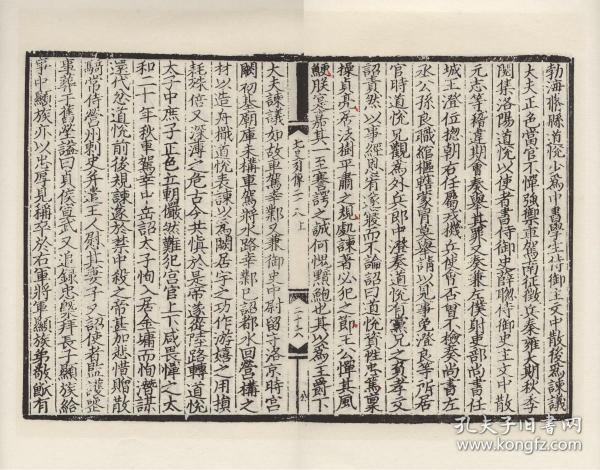 勃海蓨縣道悅少爲中書學生侍御主文中散後爲諫議
大夫正色當官不憚強禦車駕南征徵兵秦雍大期秋季
閱集洛陽道悅以使者書侍御史薛聰侍御史主文中散
元志等稽違期會奏舉其罪又奏兼左僕射吏部尚書任
城王澄位揔朝右任屬戎機兵使會否曾不檢奏尚書左
丞公孫良職綰樞轄蒙冒莫舉請以見事免澄良等所居
官時道悅兄觀爲外兵郎中澄奏道悅有黨兄之負孝文
詔責然以事經恩宥遂寢而不論詔曰道悅資性忠篤稟
操貞亮居法樹平肅之規處諫著必犯之節王公憚其風
鯁朕實嘉其一至謇諤之誠何愧黯鮑也其以爲主爵下
列傳二十八上
二十六
大夫諫議如故車駕幸鄴又兼御史中尉留守洛京時宮
闕初基廟庫未構車駕將水路幸鄴已詔都水回營構之
材以造舟檝道悅表諫以爲闕居宇之功作游嬉之用損
耗殊倍又深薄之危古今共慎於是帝遂從陸路轉道悅
太子中庶子正色立朝儼然難犯宮官上下咸畏憚之太
和二十年秋車駕幸中岳詔太子恂入居金墉而恂潛謀
還代忿道悅前後規諫遂於禁中殺之帝甚加悲惜贈散
騎常侍營州刺史并遣王人慰其妻子又詔使者監護喪
事葬于舊塋謚曰貞侯宣武又追錄忠槩拜長子顯族給
事中顯族亦以忠厚見稱卒於右軍將軍顯族弟敬猷有
孔夫子旧书网
www.kongfz.com